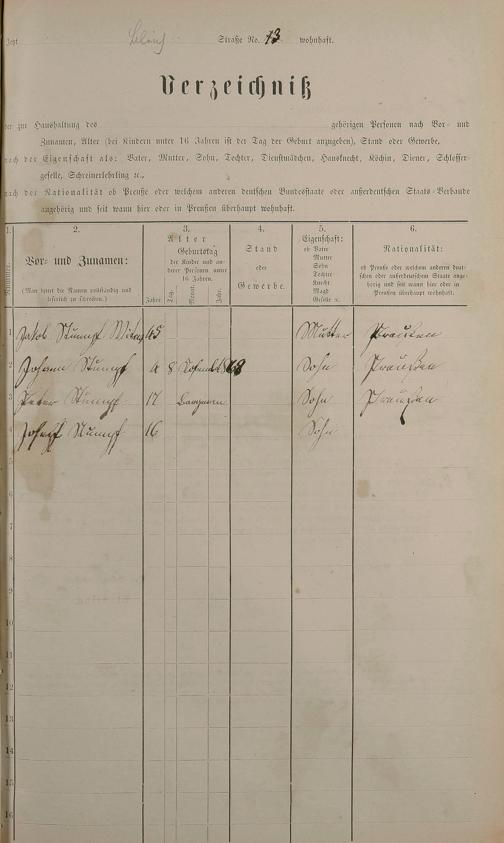 Jetzt Straße No. 13 wohnhaft.
Verzeichniß
der zur Haushaltung des gehörigen Personen nach Vor- und
Zunamen, Alter (bei Kindern unter 16 Jahren ist der Tag der Geburt anzugeben), Stand oder Gewerbe,
nach der Eigenschaft als: Vater, Mutter, Sohn, Tochter, Dienstmädchen, Hausknecht, Köchin, Diener, Schlosser-
geselle, Schreinerlehrling ꝛc.,
nach der Nationalität ob Preuße oder welchem anderen deutschen Bundesstaate oder außerdeutschen Staats-Verbande
angehörig und seit wann hier oder in Preußen überhaupt wohnhaft.
1.
Nummer.
2.
Vor- und Zunamen:
(Man bittet die Namen vollständig und
leserlich zu schreiben.)
3.
Alter
Geburtstag
der Kinder und an-
derer Personen unter
16 Jahren.
Jahre
Tag.
Monat.
Jahr.
4.
Stand
oder
Gewerbe.
5.
Eigenschaft:
ob Vater
Mutter
Sohn
Tochter
Knecht
Magd
Geselle ꝛc.
6.
Nationalität:
ob Preuße oder welchem anderen deut-
schen oder außerdeutschen Staate ange-
hörig und seit wann hier oder in
Preußen überhaupt wohnhaft.
1 Jakob Stumpf 45 Mutter Preußen
2 Johann Stumpf 8 Sohn Preußen
3 Peter Stumpf 17 Sohn Preußen
4 Josepf Stumpf 16 Sohn
5
7
8
9
10
11
12
13
14
15
16